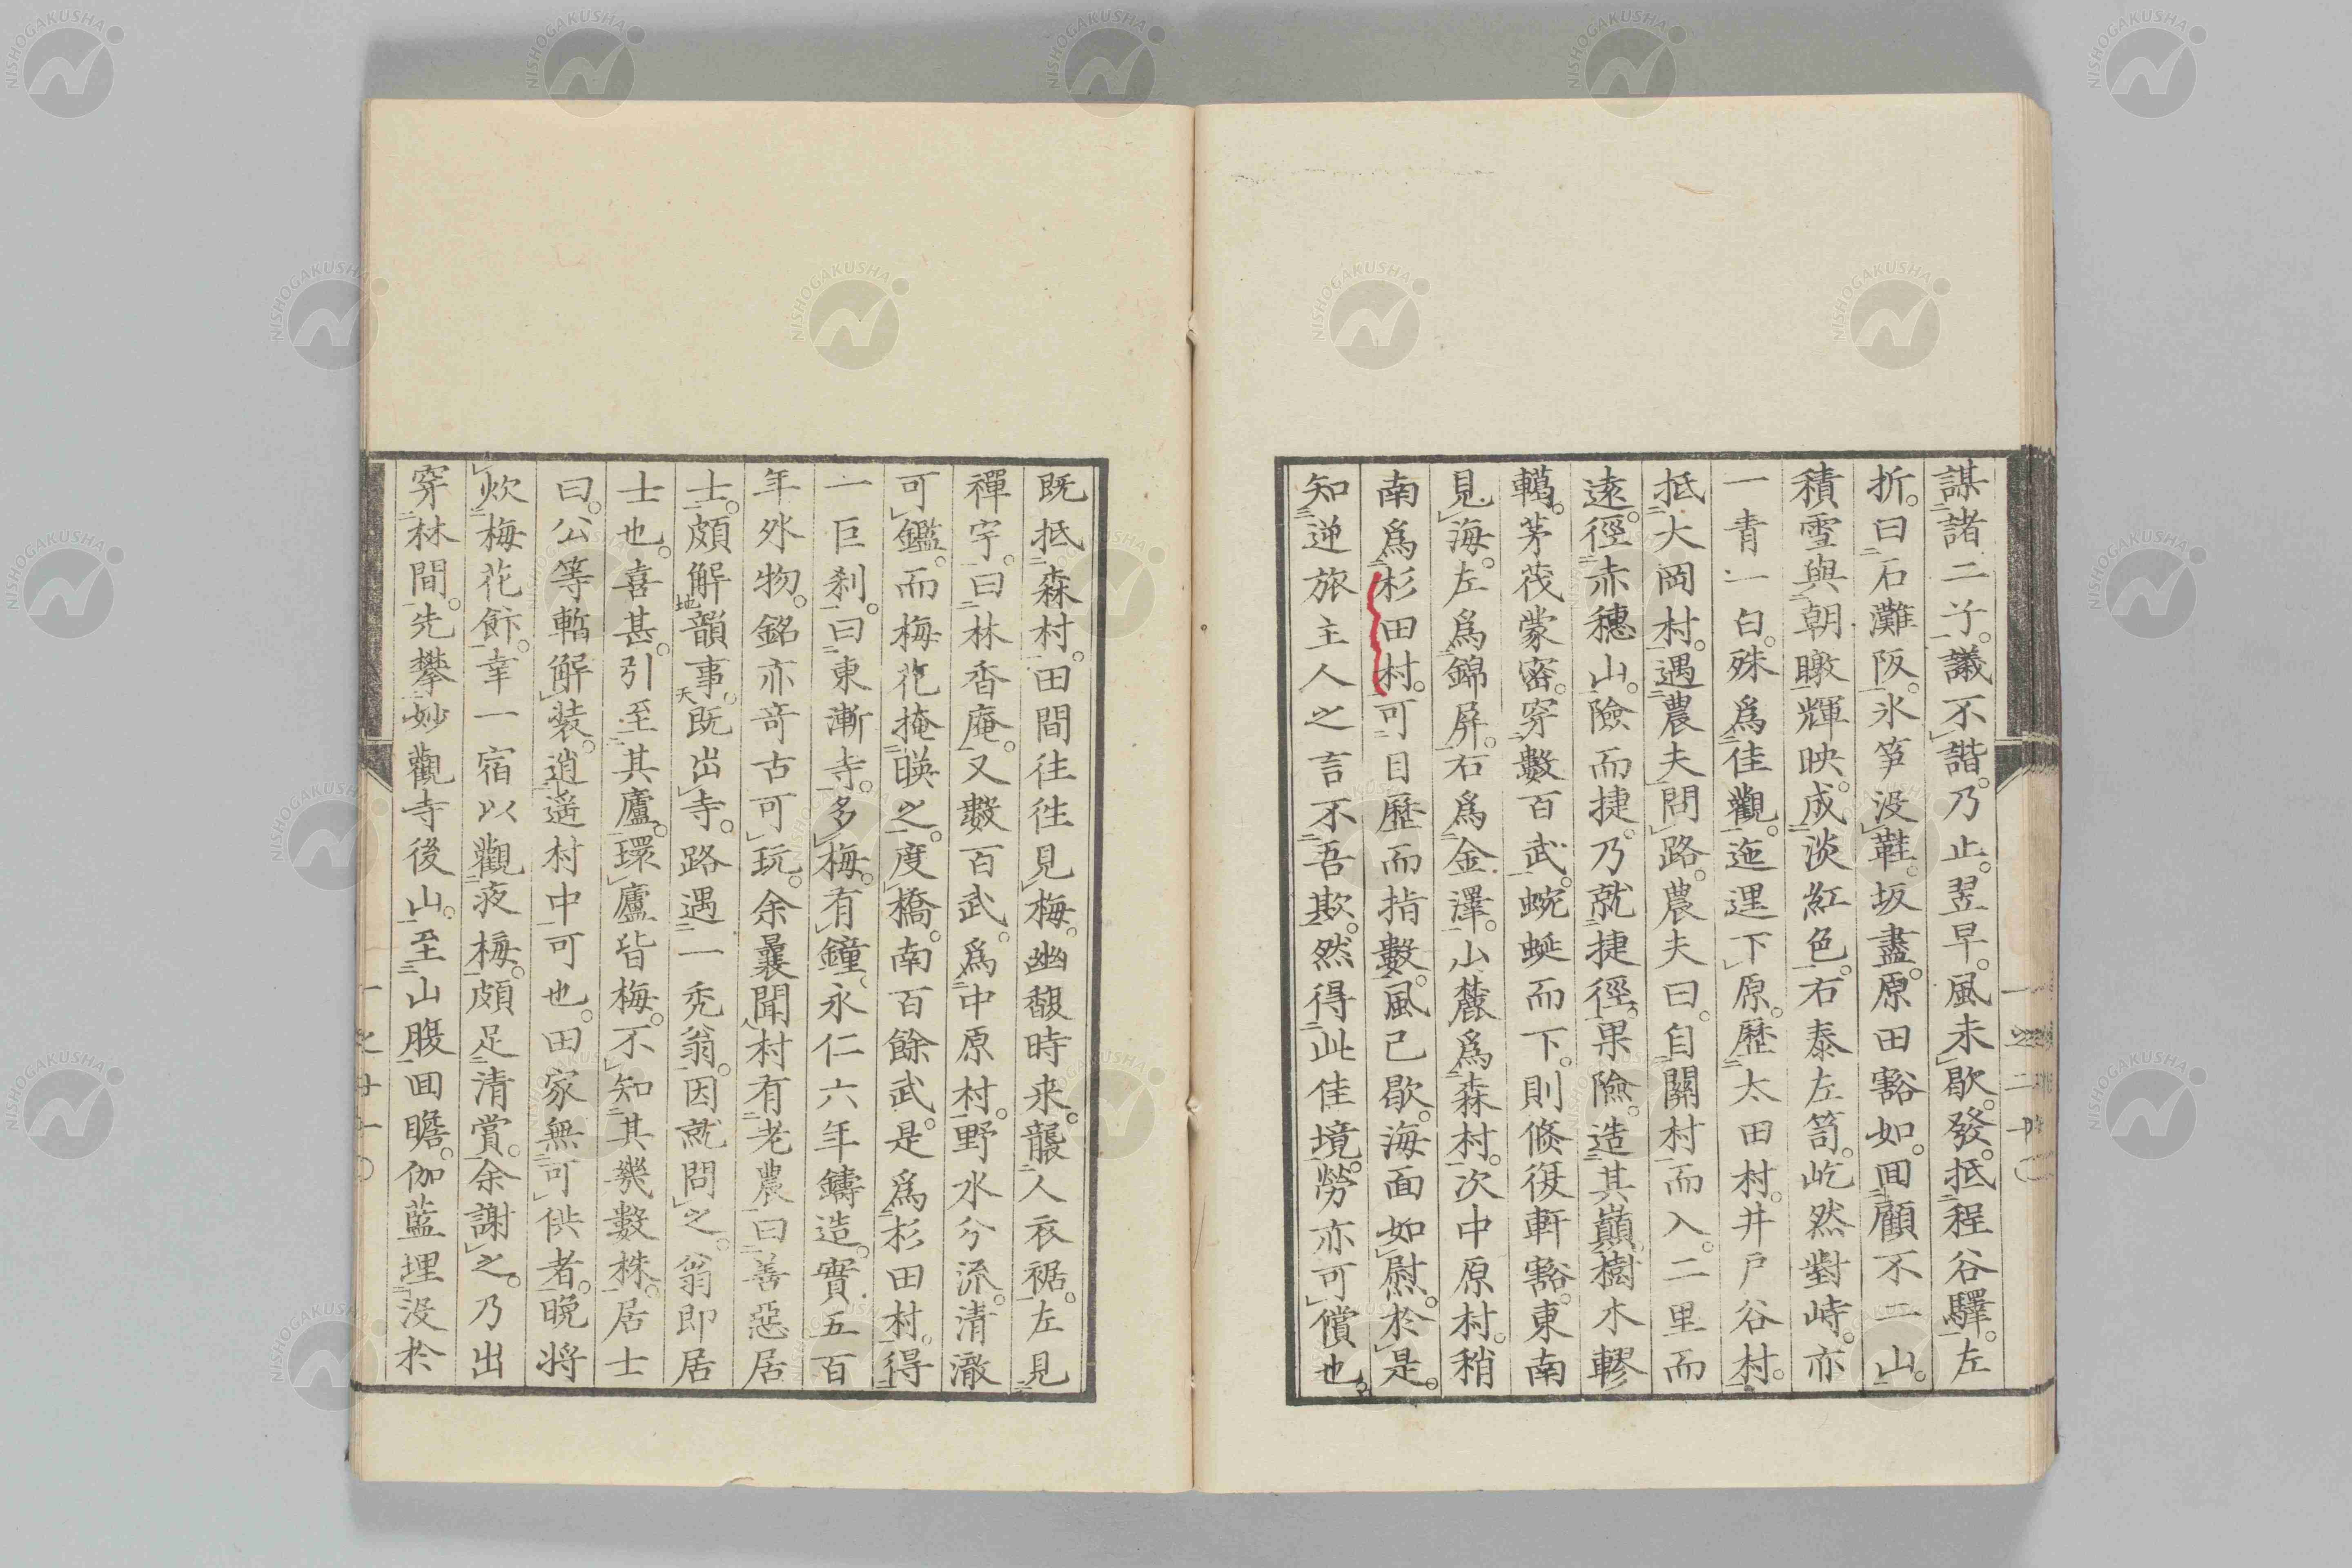 謀諸二子。議不諧。乃止。翌早。風未歇。發。抵程谷驛。左
折。曰石灘阪。氷笋没鞋。坂盡。原田豁如。回顧不二山。
積雪與朝暾輝映。成淡紅色。右泰左笥。屹然對峙。亦
一青一白。殊爲佳觀。迤邐下原。歷太田村。井戸谷村。
抵大岡村。遇農夫問路。農夫曰。自關村而入。二里而
遠。徑赤穗山。險而捷。乃就捷徑。果險。造其巓。樹木轇
轕。茅茷蒙密。穿數百武。蜿蜒而下。則倐復軒豁。東南
見海。左爲錦屏。右爲金澤。山麓爲森村。次中原村。稍
南爲杉田村。可目歷而指數。風已歇。海面如熨。於是。
知逆旅主人之言不吾欺。然得此佳境。勞亦可償也
既抵森村。田間往往見梅。幽馥時来。襲人衣裾。左見
禪宇。曰林香庵。又數百武。爲中原村。野水兮流。清澈
可鑑。而梅花掩暎之。度橋。南百餘武。是爲杉田村。得
一巨刹。曰東漸寺。多梅。有鐘、永仁六年鑄造。實五百
年外物。銘亦竒古可玩。余曩聞村有老農。曰善惡居
士。頗解韻事。既出寺。路遇一秃翁。因就問之。翁即居
士也。喜甚。引至其廬。環廬皆梅。不知其幾數株。居士
曰。公等暫解装。逍遥村中可也。田家無可供者。晩将
炊梅花飰。幸一宿以觀夜梅。頗足清賞。余謝之。乃出
穿林間。先攀妙觀寺後山。至山腹回瞻。伽藍埋没於
NISHOGAKUSHA